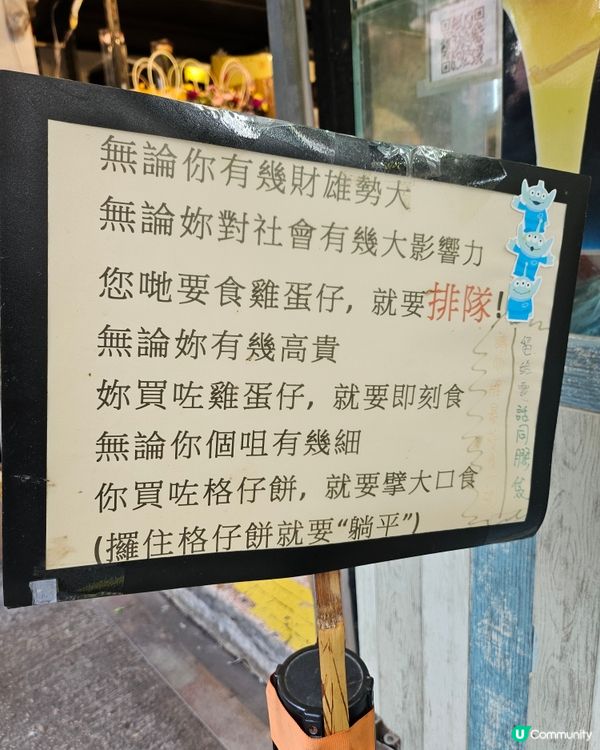 無論你有幾財雄勢大
無論妳對社會有幾大影響力
您哋要食雞蛋仔, 就要排隊!
無論妳有幾高貴
妳買咗雞蛋仔, 就要即刻食
無論你個咀有幾細
你買咗格仔餅, 就要擘大口食
(攞住格仔餅就要“躺平”)
U Community